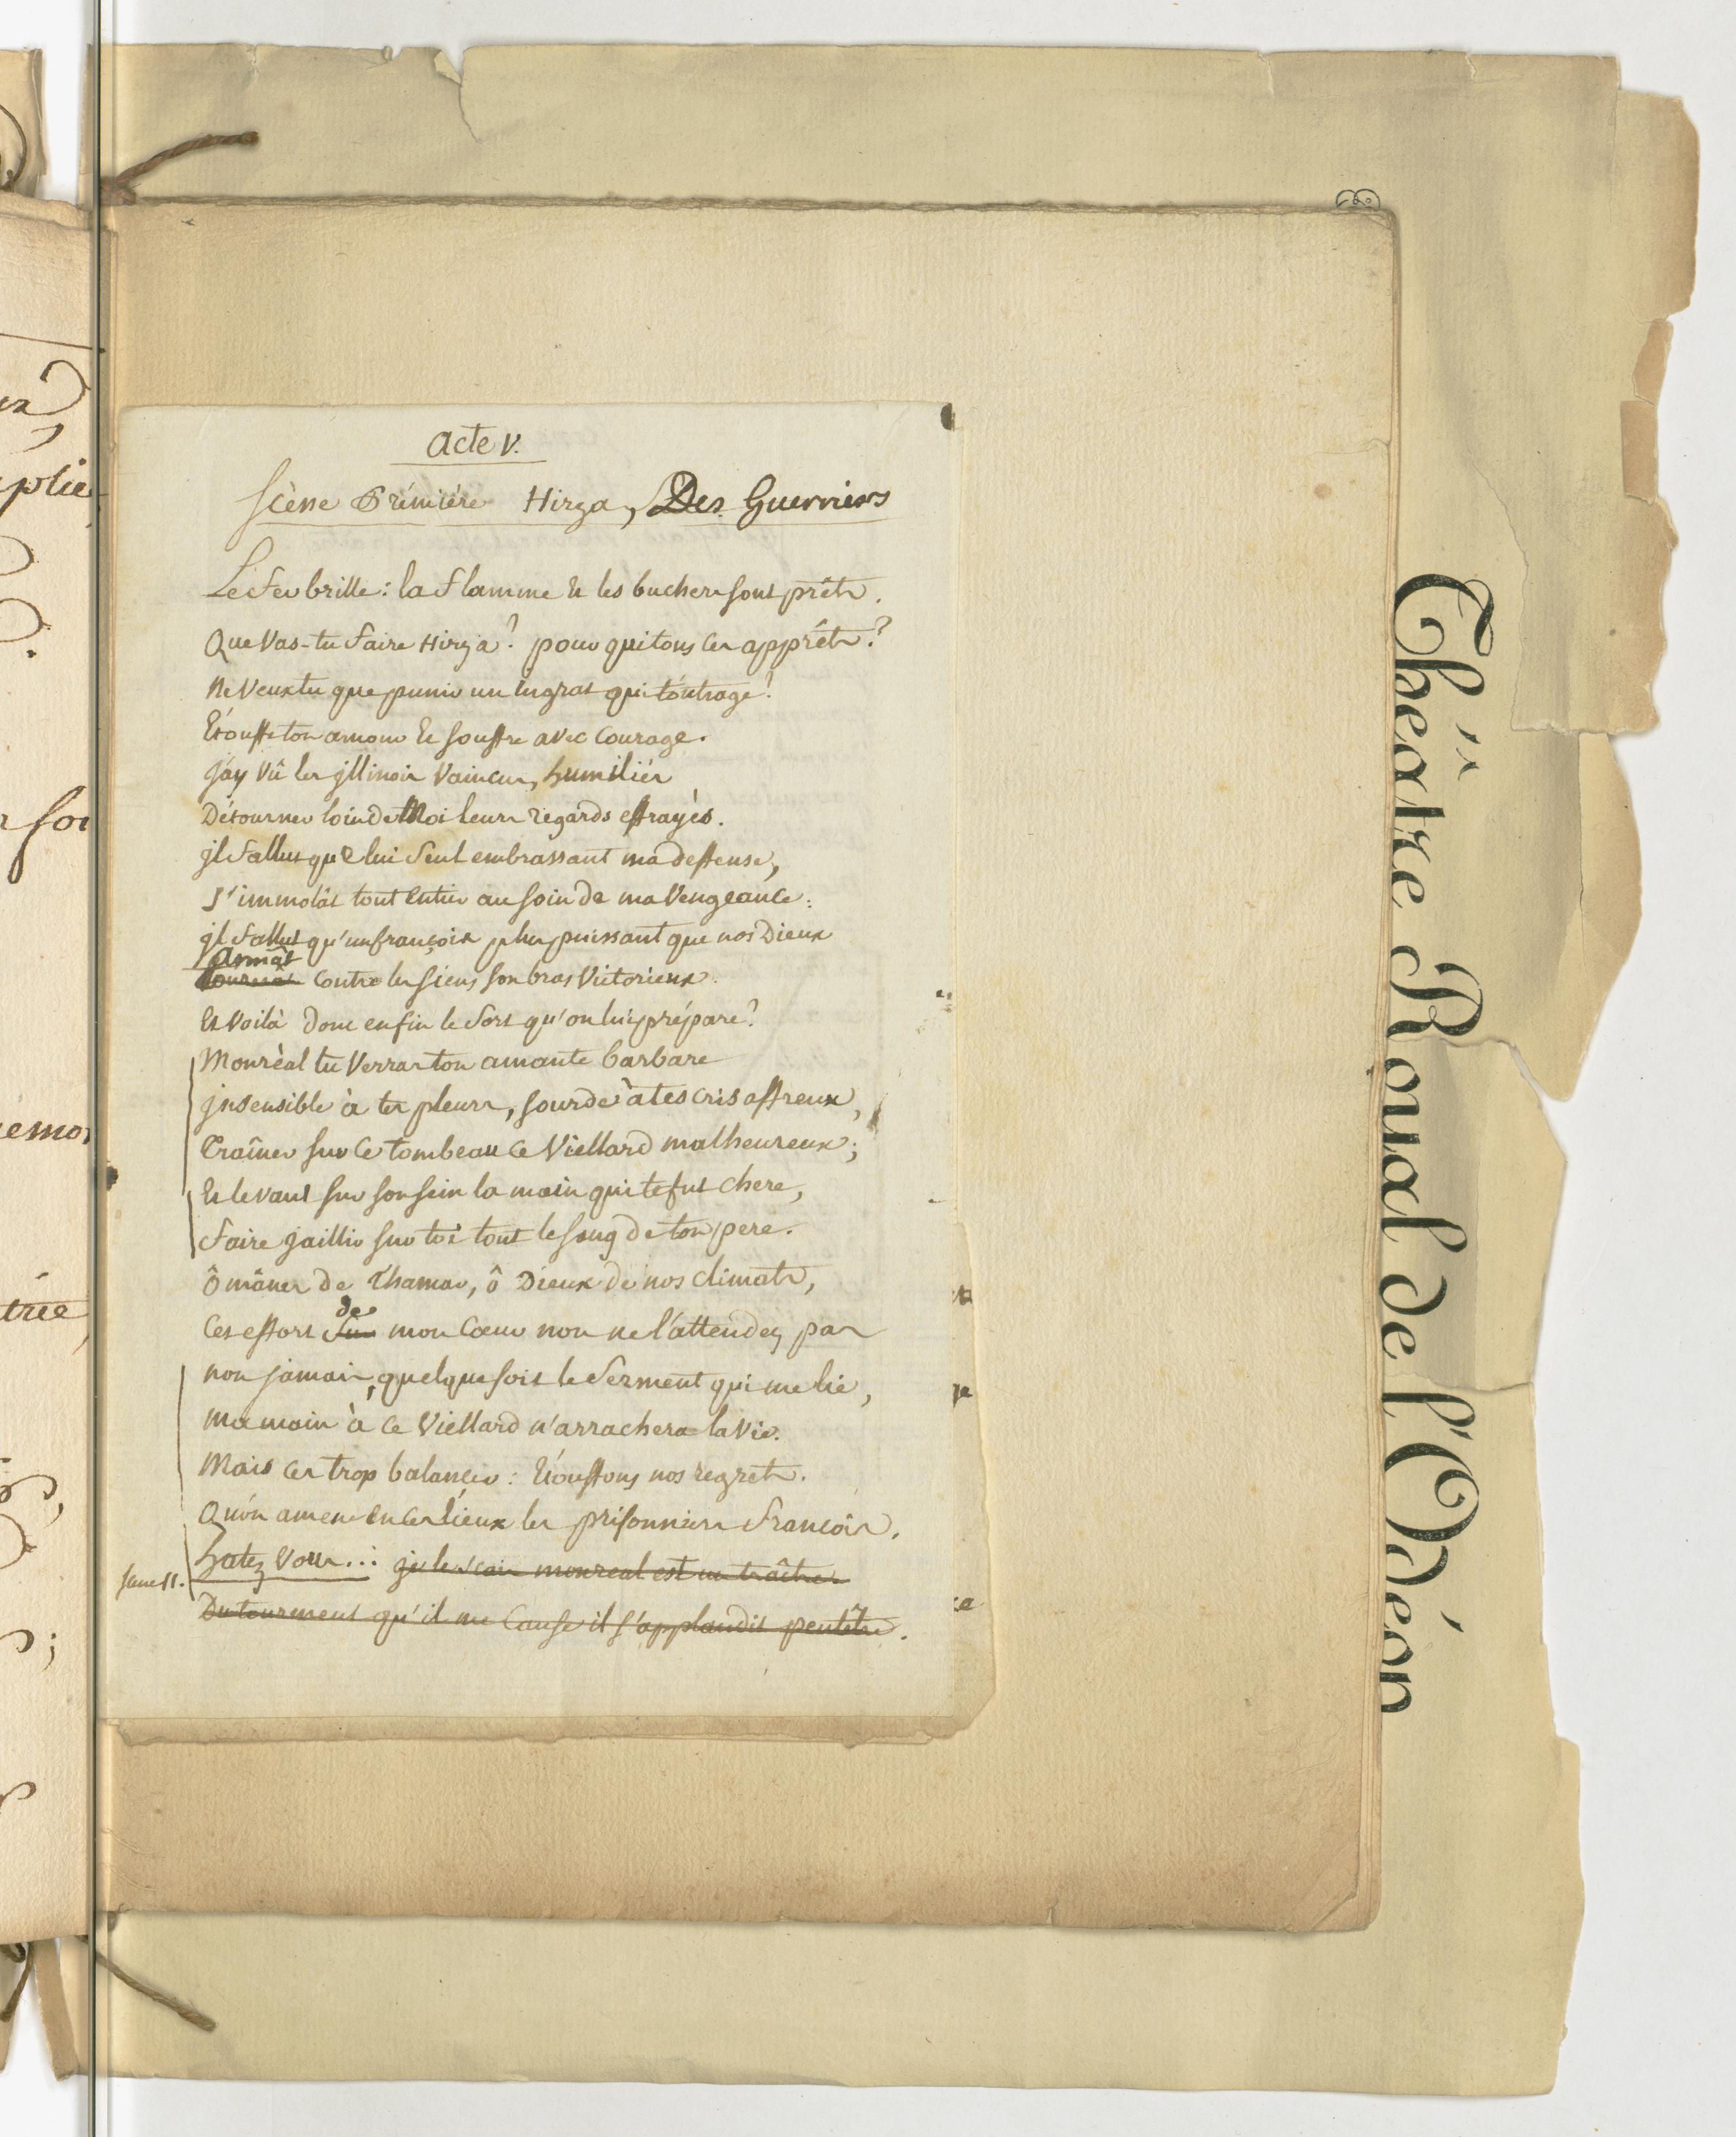 Acte V.
Scène Prémière Hirza, Des Guerriers
Le feu brille : la flamme et les buchers sont prêts.
Que Vas-tu faire Hirza ? pour qui tous ces apprêts ?
Ne Veux tu que punir un ingrat qui t'outrage ?
Etouffe ton amour et souffre avec Courage.
J'ay vû les jllinois Vaincus, humiliés
Détourner loin de Moi leurs regards effrayès.
jl fallut que lui Seul embrassant ma deffense,
S'immolât tout entier au soin de ma Vengeance :
jl fallut qu'un françois plus puissant que nos Dieux
armât
tournât Contre les siens son bras Victorieux.
Et Voilà donc enfin le Sort qu'on lui prépare ?
Monrèal tu Verras ton amante barbare
jnsensible à tes pleurs, sourde à tes cris affreux,
Traîner sur ce tombeau ce Viellard malheureux ;
Et levant sur son sein la main qui te fut chere,
faire jaillir sur toi tout le sang de ton pere.
ô mânes de Thamar, ô Dieux de nos climats,
de
Cet effort sur mon Coeur non ne l'attendez pas
non jamais, quelque soit le Serment qui me lie,
ma main à ce Viellard n'arrachera la Vie.
Mais c'est trop balancer : étouffons nos regrets.
Qu'on amene en ces lieux les prisonniers françois.
hatez Vous... je le scais monreal est un traître
Scene II.
Du tourment qu'il me Cause il s'applaudit peutêtre.
Théâtre Royal de l'Odéon